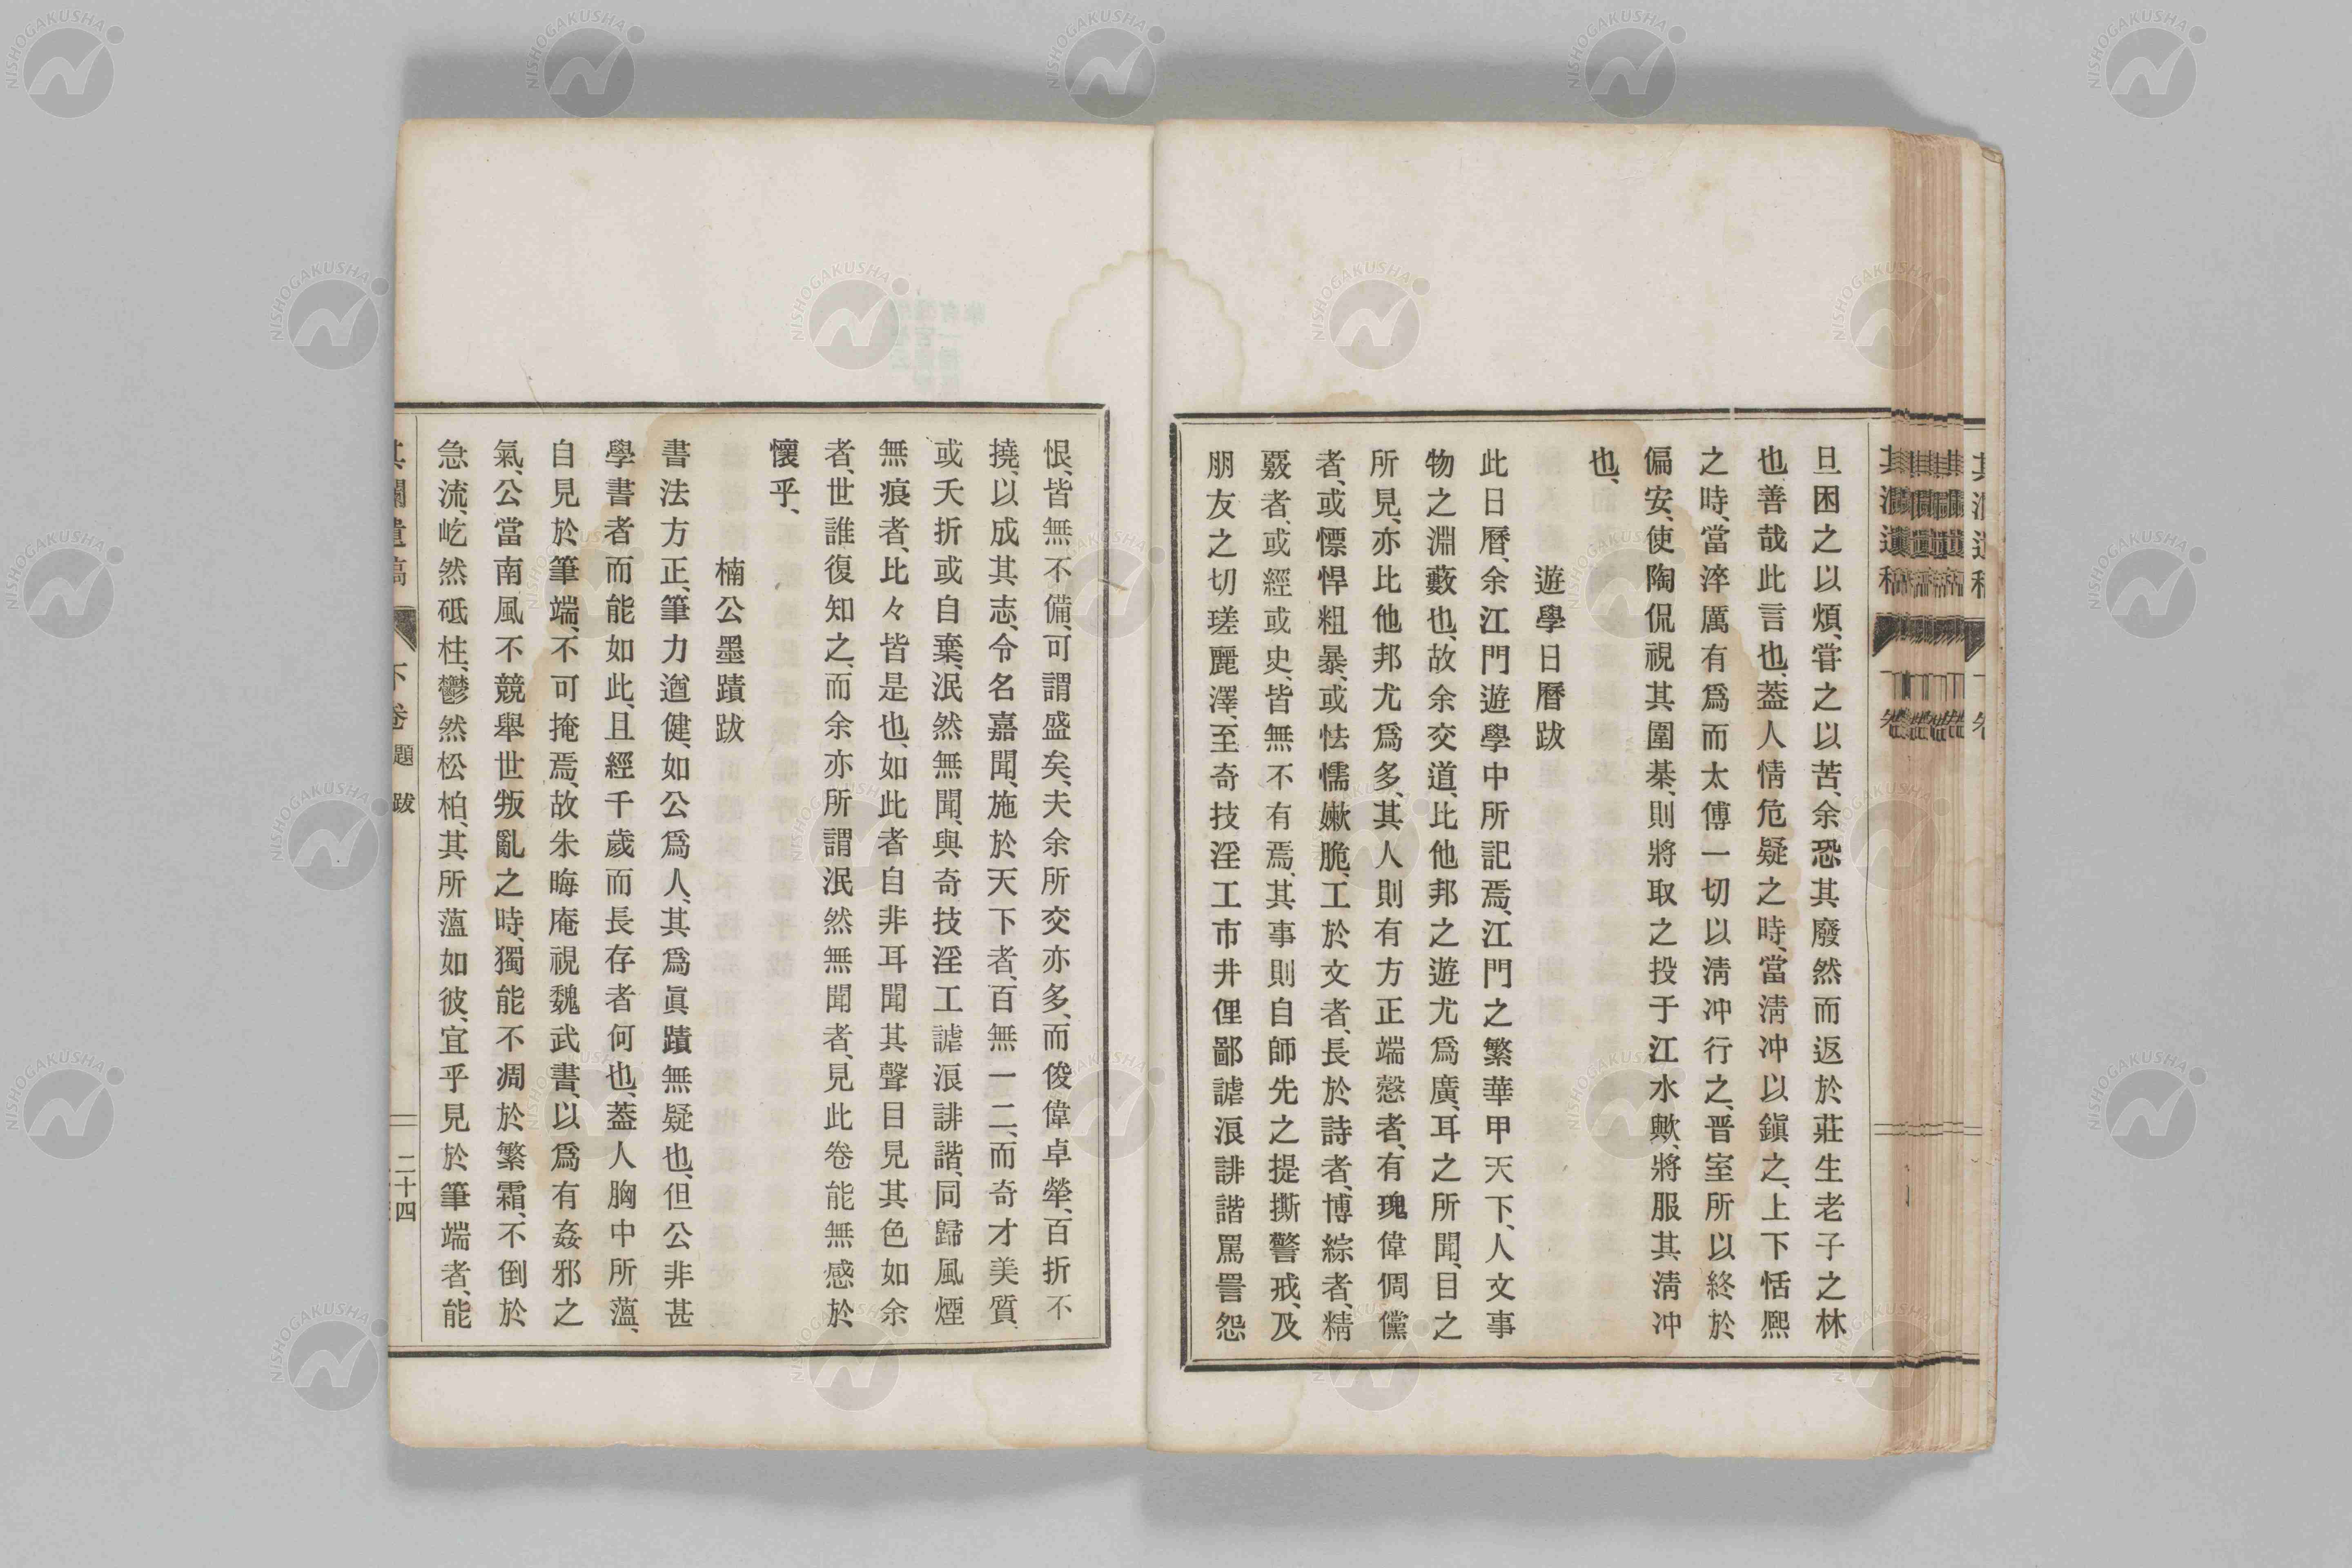 旦困之以煩、甞之以苦、余恐其廢然而返於莊生老子之林
也、善哉此言也、蓋人情危疑之時、當淸冲以鎭之、上下恬熈
之時、當淬厲有爲而太傅一切以淸冲行之、晋室所以終於
偏安、使陶侃視其圍棊、則將取之投于江水歟、將服其淸冲
也、
遊學日曆跋
此日曆、余江門遊學中所記焉、江門之繁華甲天下、人文事
物之淵藪也、故余交道、比他邦之遊尤爲廣、耳之所聞、目之
所見、亦比他邦尤爲多、其人則有方正端愨者、有瑰偉倜儻
者、或慓悍粗暴、或怯懦嫩脆、工於文者、長於詩者、博綜者、精
覈者、或經或史、皆無不有焉、其事則自師先之提撕警戒、及
朋友之切瑳麗澤、至奇技淫工市井俚鄙謔浪誹諧罵詈怨
恨、皆無不備、可謂盛矣、夫余所交亦多、而俊偉卓犖、百折不
撓、以成其志、令名嘉聞、施於天下者、百無一二、而奇才美質、
或夭折或自棄、泯然無聞、與奇技淫工謔浪誹諧、同歸風煙
無痕者、比々皆是也、如此者自非耳聞其聲目見其色如余
者、世誰復知之、而余亦所謂泯然無聞者、見此卷能無感於
懷乎、
楠公墨蹟跋
書法方正、筆力遒健、如公爲人、其爲眞蹟無疑也、但公非甚
學書者而能如此、且經千歲而長存者何也、蓋人胸中所薀、
自見於筆端、不可掩焉、故朱晦庵視魏武書、以爲有姦邪之
氣、公當南風不競舉世叛亂之時、獨能不凋於繁霜、不倒於
急流、屹然砥柱、鬱然松柏、其所薀如彼、宜乎見於筆端者、能
下卷 題跋 二十四